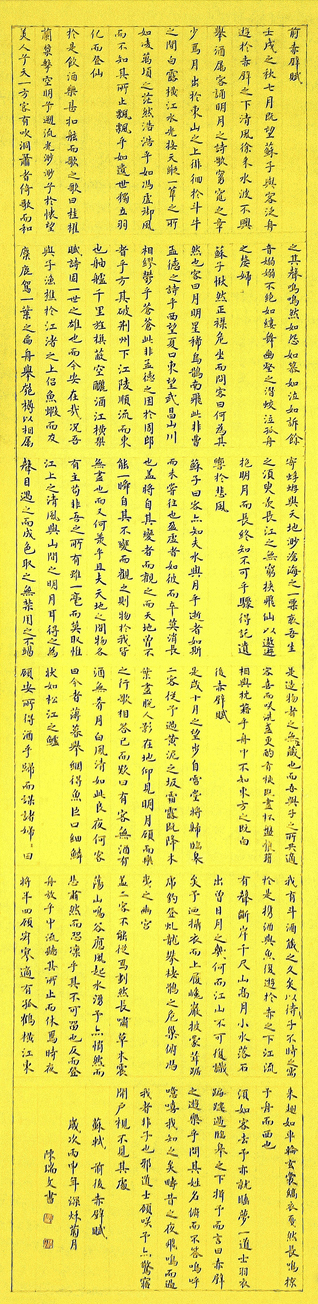 前赤壁賦
壬戌之秋七月既望蘇子與客泛舟
遊於赤壁之下清風徐來水波不興
舉酒屬客誦明月之詩歌窈窕之章
少焉月出於東山之上徘徊於斗牛
之間白露橫江水光接天縱一葦之所
如凌萬頃之茫然浩浩乎如馮虛御風
而不知其所止飄飄乎如遺世獨立羽
化而登仙
於是飲酒樂甚扣舷而歌之歌曰桂櫂
蘭槳擊空明兮遡流光渺渺兮於懷望
美人兮天一方客有吹洞簫者倚歌而和
之其聲嗚嗚然如怨如慕如泣如訴餘
音嫋嫋不絕如縷舞幽壑之潛蛟泣孤舟
之嫠婦
蘇子愀然正襟危坐而問客曰何為其
然也客曰月明星稀烏鵲南飛此非曹
孟德之詩乎西望夏口東望武昌山川
相繆鬱乎蒼蒼此非孟德之困於周郎
者乎方其破荆州下江陵順流而東
也舳艫千里旌旗蔽空釃酒江橫槊
賦詩固一世之雄也而今安在哉況吾
與子漁樵於江渚之上侶魚蝦而友
麋鹿駕一葉之扁舟舉匏樽以相屬
寄蜉蝣與天地渺滄海之一粟哀吾生
之須臾羨長江之無窮挾飛仙以遨遊
抱明月而長終知不可乎驟得託遺
響於悲風
蘇子曰客亦知夫水與月乎逝者如斯
而未嘗往也盈虛者如彼而卒莫消長
也蓋將自其變者而觀之而天地曾不
能瞬自其不變而觀之則物於我皆
無盡也而又何羨乎且夫天地之間物各
有主苟非吾之所有雖一毫而莫取惟
江上之清風與山間之明月耳得之為
聲目遇之而成色取之無禁用之不竭
是造物者之無盡藏也而吾與子之所共適
客喜而笑洗盞更酌肴核既盡杯盤狼藉
相與枕藉乎舟中不知東方之既白
後赤壁賦
是歲十月之望步自雪堂將歸臨皋
二客從予過黃泥之坂霜露既降木
葉盡脫人影在地仰見明月顧而樂
之行歌相答已而歎曰有客無酒有
酒無肴月白風清如此良夜何客
曰今者薄暮舉網得魚巨口細鱗
狀如松江之鱸
顧安所得酒乎歸而謀諸婦婦曰
我有斗酒藏之久矣以待子不時之需
於是携酒與魚復遊於赤之下江流
有聲斷岸千尺山高月小水落石
出曾日月之幾何而江山不可復識
矣予迺攝衣而上履巉巖披蒙茸踞
虎豹登虬龍攀棲鶻之危巢俯馮
夷之幽宮
蓋二客不能從焉劃然長嘯草木震
蕩山鳴谷應風起水湧予亦悄然而
悲肅然而恐凛乎其不可留也反而登
舟放乎中流聽其所止而休焉時夜
將半四顧寂寥適有孤鶴橫江東
來翅如車輪玄裳縞衣戛然長鳴掠
予舟而西也
須臾客去予亦就睡夢一道士羽衣
蹁躚過臨皋之下揖予而言曰赤壁
之遊樂乎問其姓名俯而不答嗚呼
噫嘻我知之矣疇昔之夜飛鳴而過
我者非子也邪道士顧笑予亦驚寤
開戶視不見其處
蘇軾前後赤壁賦
歲次丙申年深秋菊月
陳瑞文書